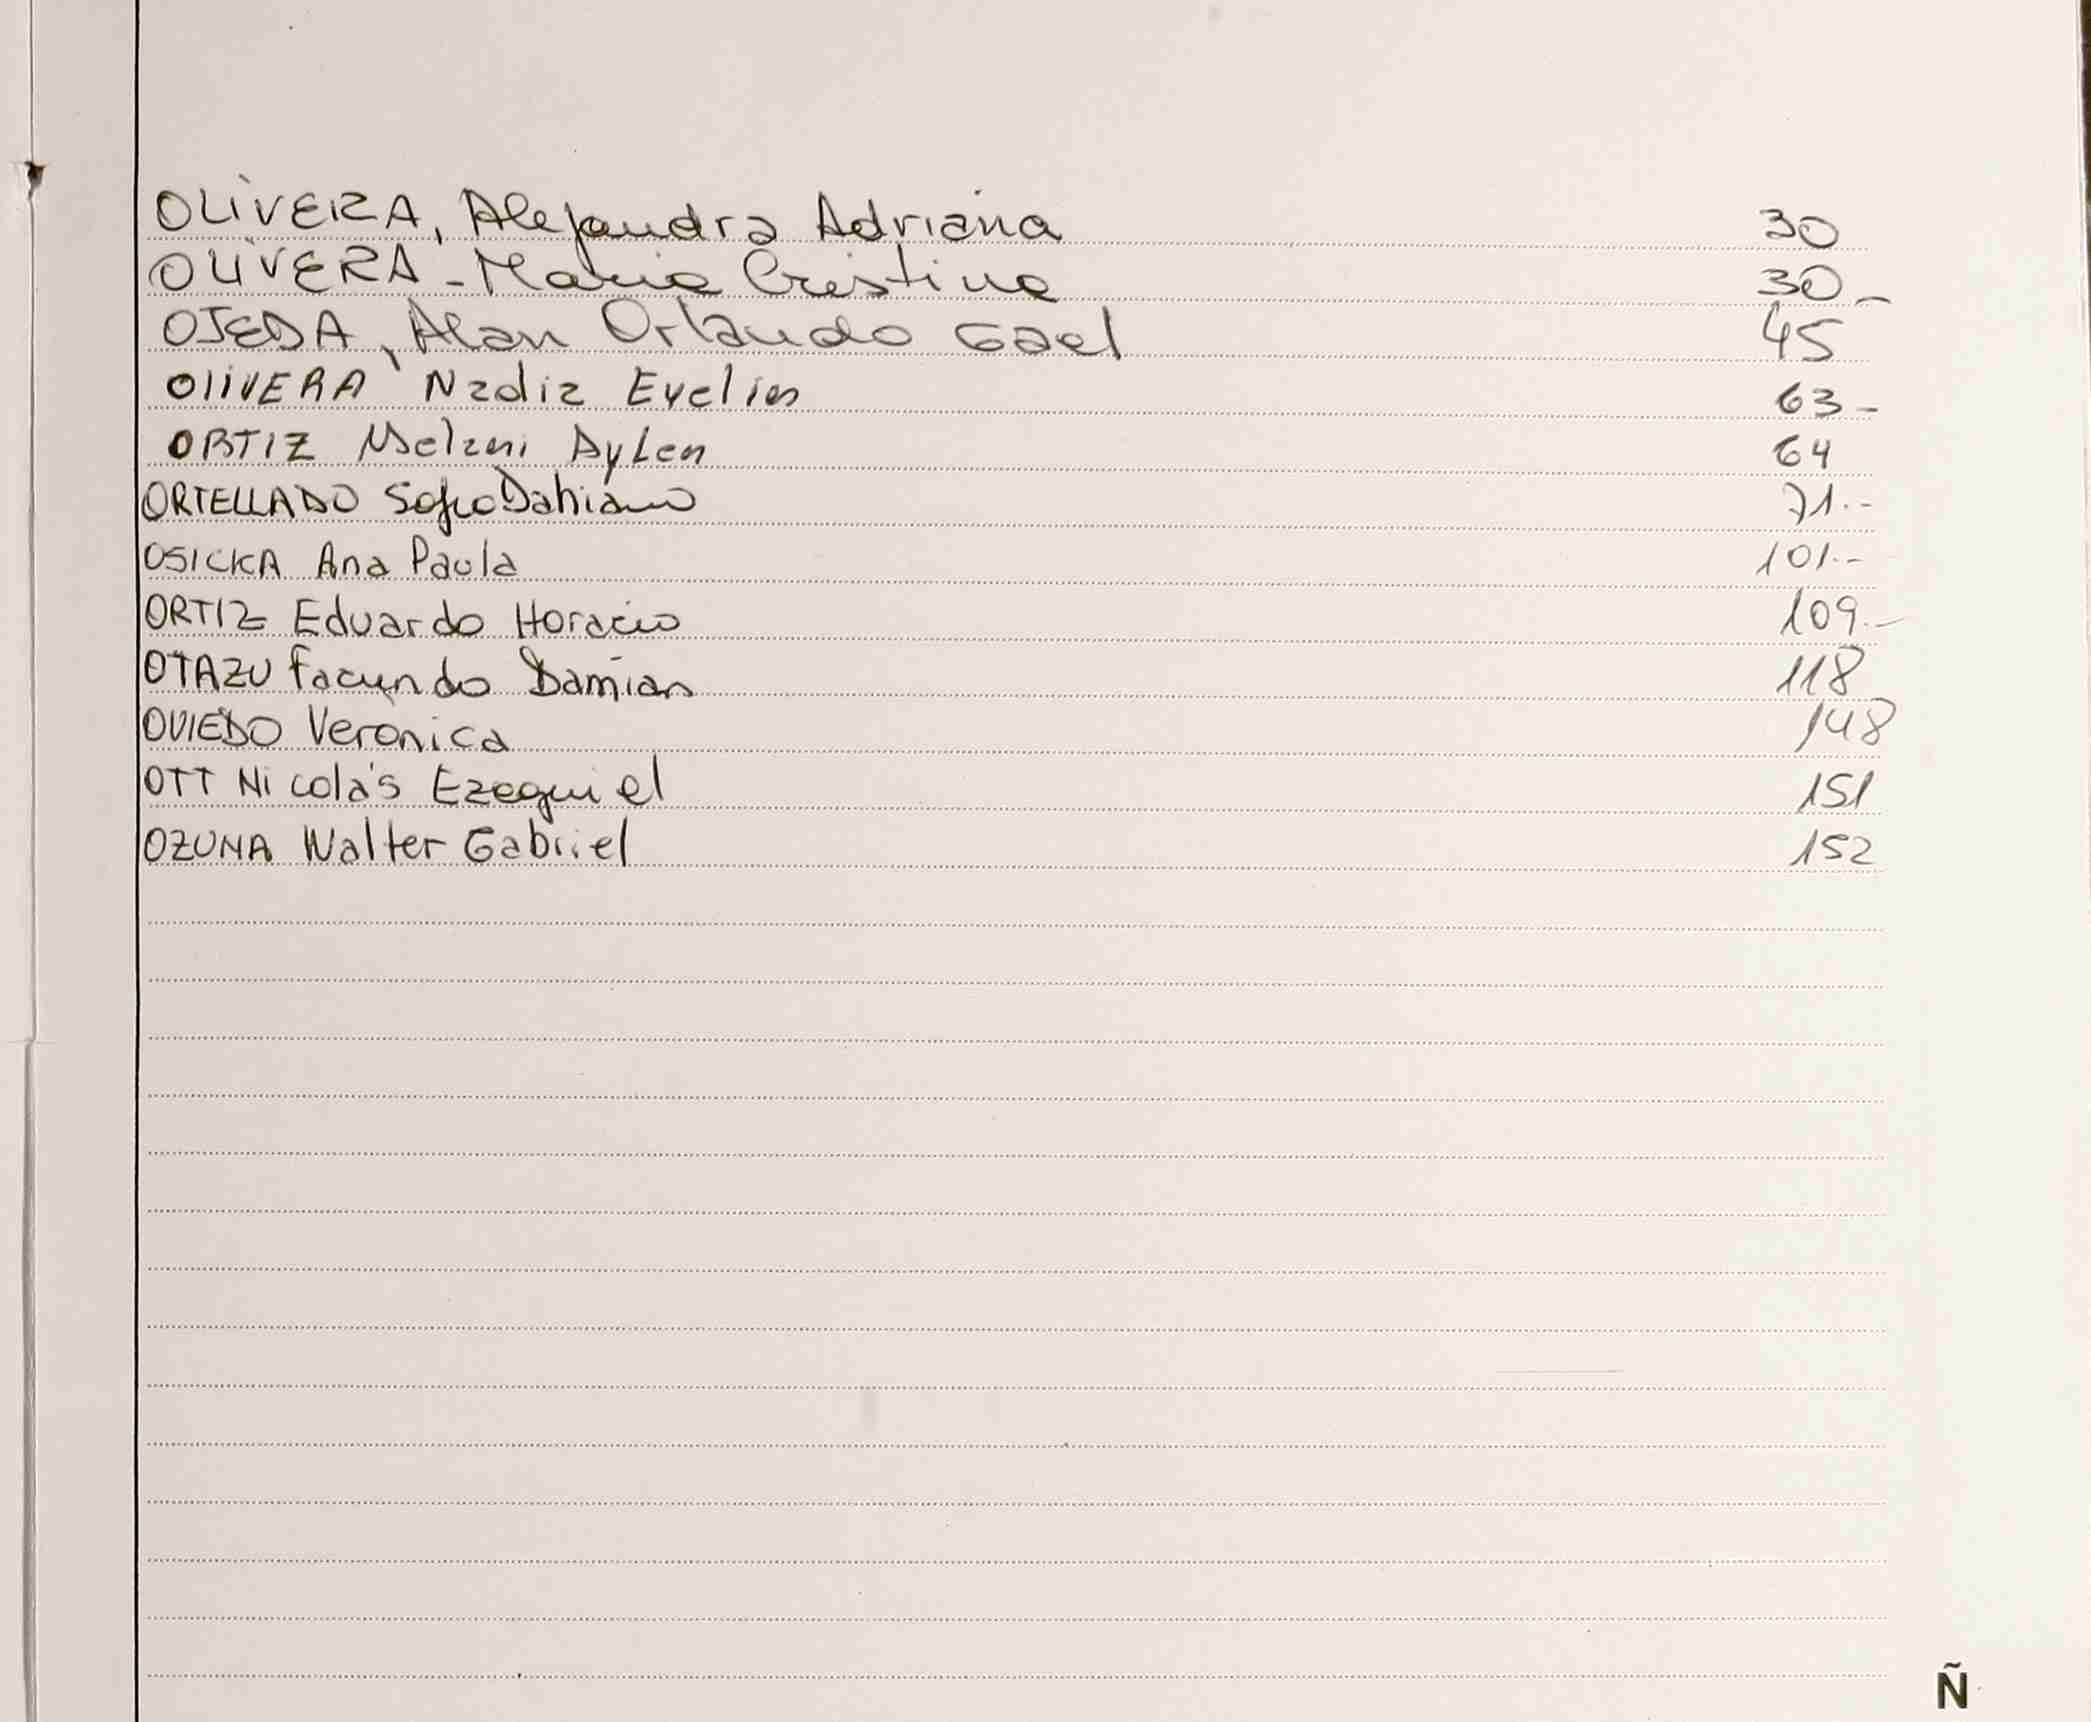 OLIVERA, Alejandra Adriana 30
OLIVERA - Maria Cristina 30 -
OJEDA, Alan Orlando Gael 45
OlIVERA Nadia Evelin 63 -
ORTIZ Melani Aylen 64
ORTELLADO Sofia Dahiana 71.-
OSICKA Ana Paula 101.-
ORTIZ Eduardo Horacio 109.-
OTAZU Facundo Damian 118
OVIEDO Veronica 148
OTT Nicolás Ezequiel 151
OZUNA Walter Gabriel 152
Ñ